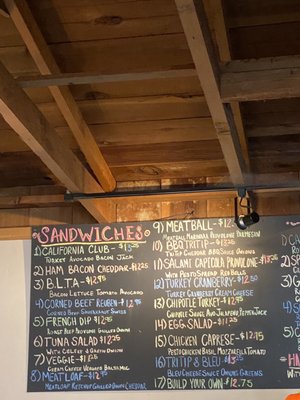 SANDWICHES
1) CALIFORNIA CLUB - $13.25
TURKEY AVOCADO BACON JACK
2) HAM BACON CHEDDAR - $12.25
3) B.L.T.A - $12.95
BACON LETTUCE TOMATO AVOCADO
4) CORNED BEEF REUBEN - $12.95
5) FRENCH DIP $12.95
6) TUNA SALAD $12.95
WITH CELERY & GREEN ONION
7) VEGGIE - $11.25
8) MEATLOAF - $12.95
MEATLOAF KETCHUP GRILLED ONION CHEDDAR
9) MEATBALL - $12
MEATBALL MARINARA PROVOLONE PARMESAN
10) BBQ TRITIP - $13.25
TRITIP CHEDDAR BBQ SAUCE ONIONS
11) SALAMI CAPICOLA PROVOLONE $13.25
WITH PESTO SPREAD RED BELLS
12) TURKEY CRANBERRY - $12.50
TURKEY CRANBERRY CREAM CHEESE
13) CHIPOTLE TURKEY - $12.95
CHIPOTLE SAUCE AVO JALAPENO PEPPER JACK
14) EGG SALAD - $11.25
15) CHICKEN CAPRESE - $12.95
PESTO CHICKEN BASIL MOZZARELLA TOMATO
16) TRITIP & BLEU $13.25
BLEU CHEESE SAUCE ONIONS GREENS
17) BUILD YOUR OWN $12.75